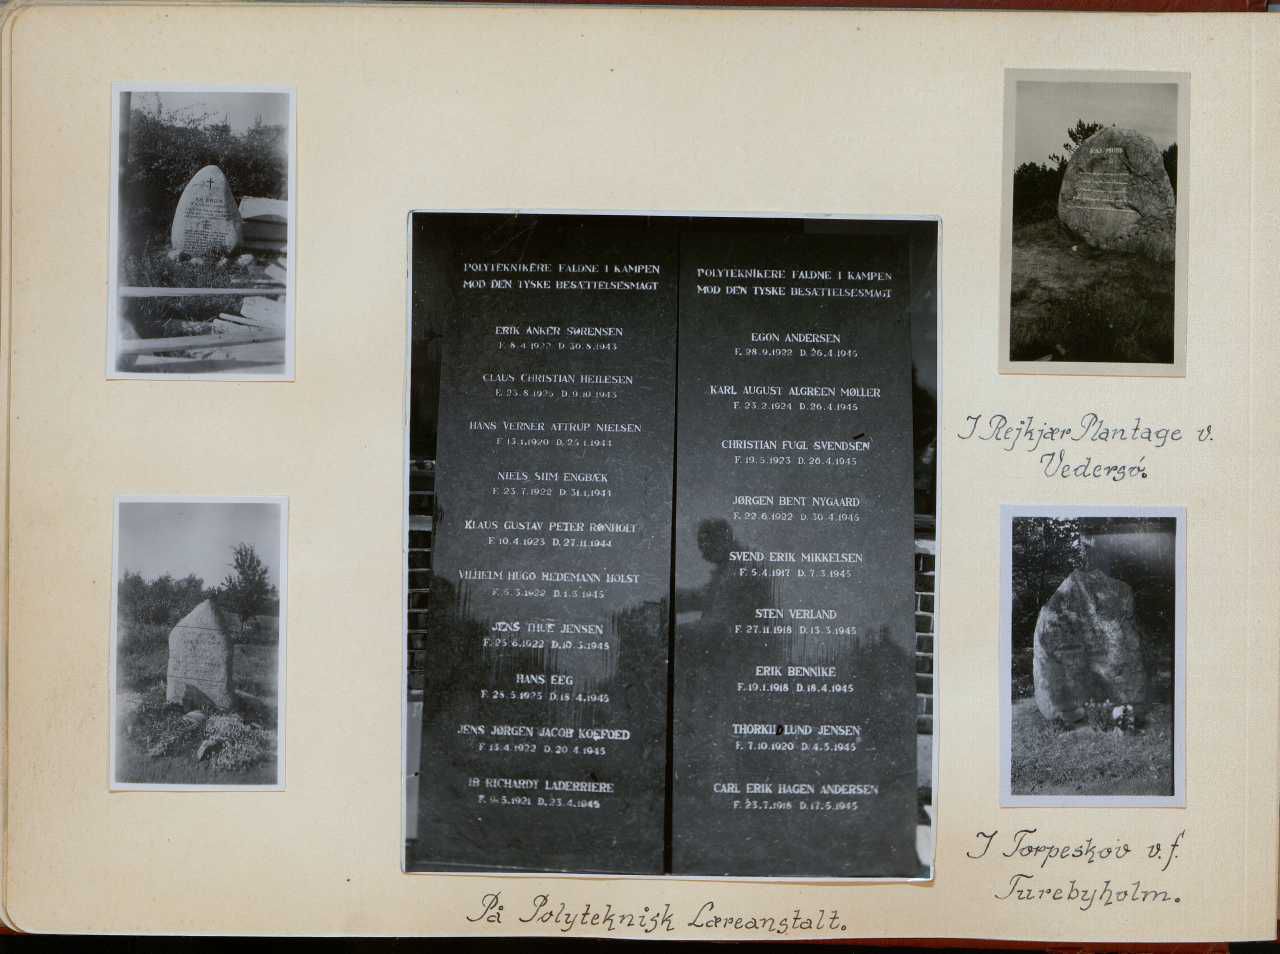 POLYTEKNIKERE FALDNE I KAMPEN
MOD DEN TYSKE BESÆTTELSESMAGT
ERIK ANKER SØRENSEN
F. 8.4.1922 D. 30.8.1943
CLAUS CHRISTIAN HEILESEN
F. 23.8.1925 D. 9.10.1943
HANS VERNER ATTRUP NIELSEN
F. 13.1.1920 D. 25.1.1944
NIELS SIIM ENGBÆK
F. 23.7.1922 D. 31.1.1944
KLAUS GUSTAV PETER RØNHOLT
F. 10.4.1923 D. 27.11.1944
VILHELM HUGO HEDEMANN HOLST
F. 5.3.1922 D. 1.3.1945
JENS THUE JENSEN
F. 25.6.1922 D. 10.3.1945
HANS EEG
F. 28.5.1923 D. 18.4.1945
JENS JØRGEN JACOB KOEFOED
F. 13.4.1922 D. 20.4.1945
IB RICHARDT LADERRIERE
F. 9.5.1921 D. 23.4.1945
POLYTEKNIKERE FALDNE I KAMPEN
MOD DEN TYSKE BESÆTTELSESMAGT
EGON ANDERSEN
F. 28.9.1922 D. 26.4.1945
KARL AUGUST ALGREEN MØLLER
F. 23.2.1924 D. 26.4.1945
CHRISTIAN FUGL SVENDSEN
F. 19.5.1923 D. 26.4.1945
JØRGEN BENT NYGAARD
F. 22.6.1922 D. 30.4.1945
SVEND ERIK MIKKELSEN
F. 5.4.1917 D. 7.3.1945
STEN VERLAND
F. 27.11.1918 D. 13.3.1945
ERIK BENNIKE
F. 19.1.1918 D. 18.4.1945
THORKIL LUND JENSEN
F. 7.10.1920 D. 4.5.1945
CARL ERIK HAGEN ANDERSEN
F. 23.7.1918 D. 17.5.1945
På Polyteknisk Læreanstalt.
KAJ MUNK
I Rejkjær Plantage v.
Vedersø.
I Torpeskov v.f.
Turebyholm.